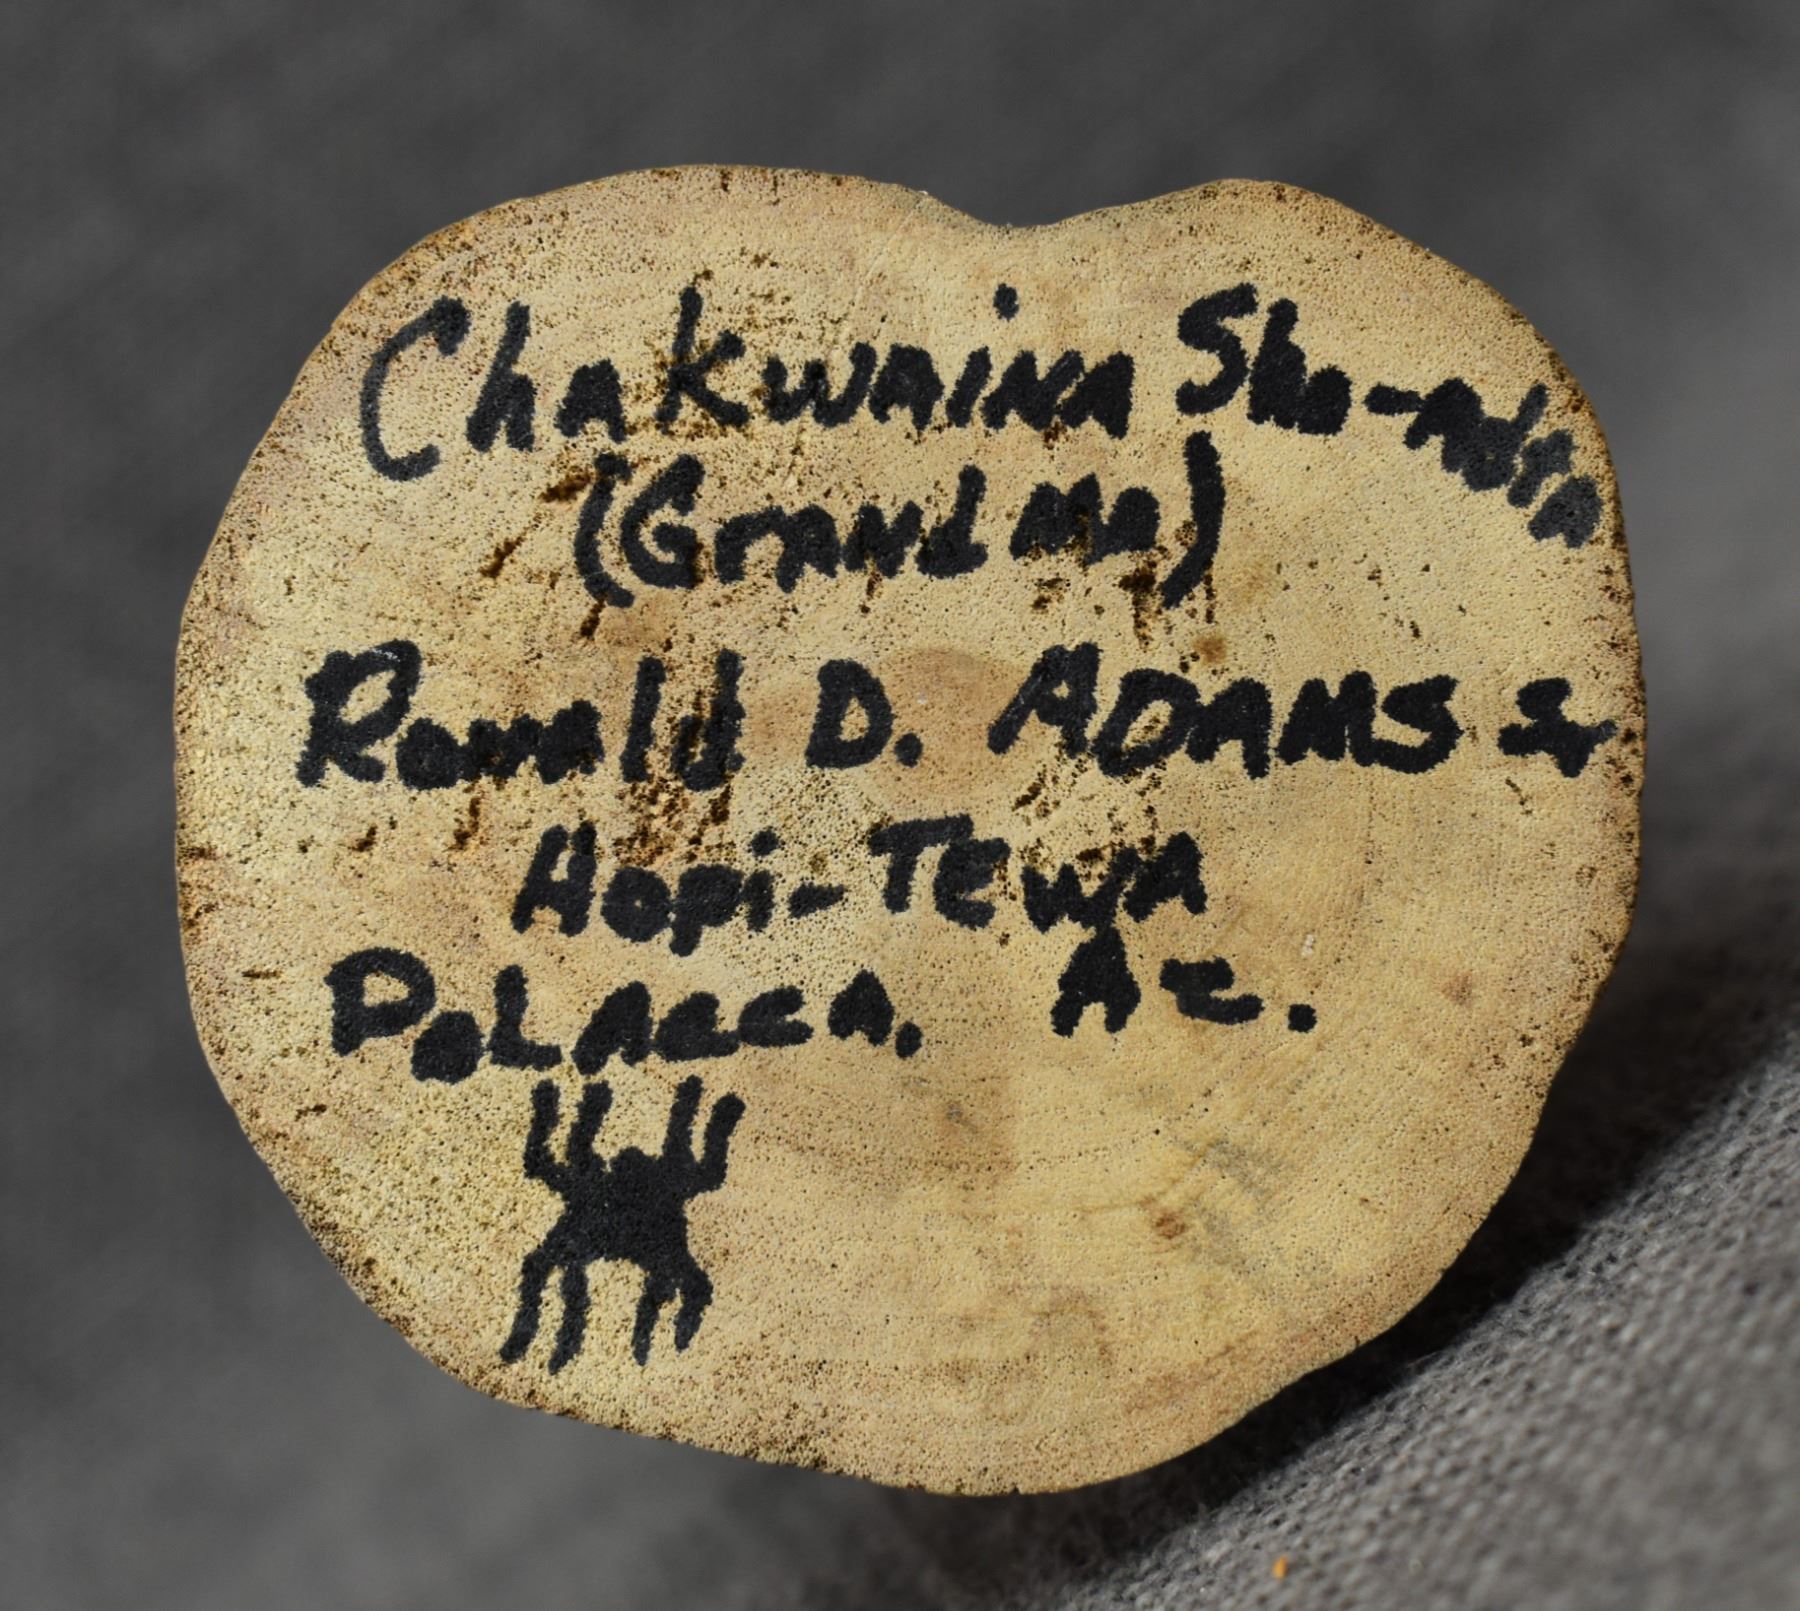 Chakwaina Sho-Adta
(Grandma)
Ronald D. ADAMS Sr
Hopi-TEWA
PoLAcca, Az.